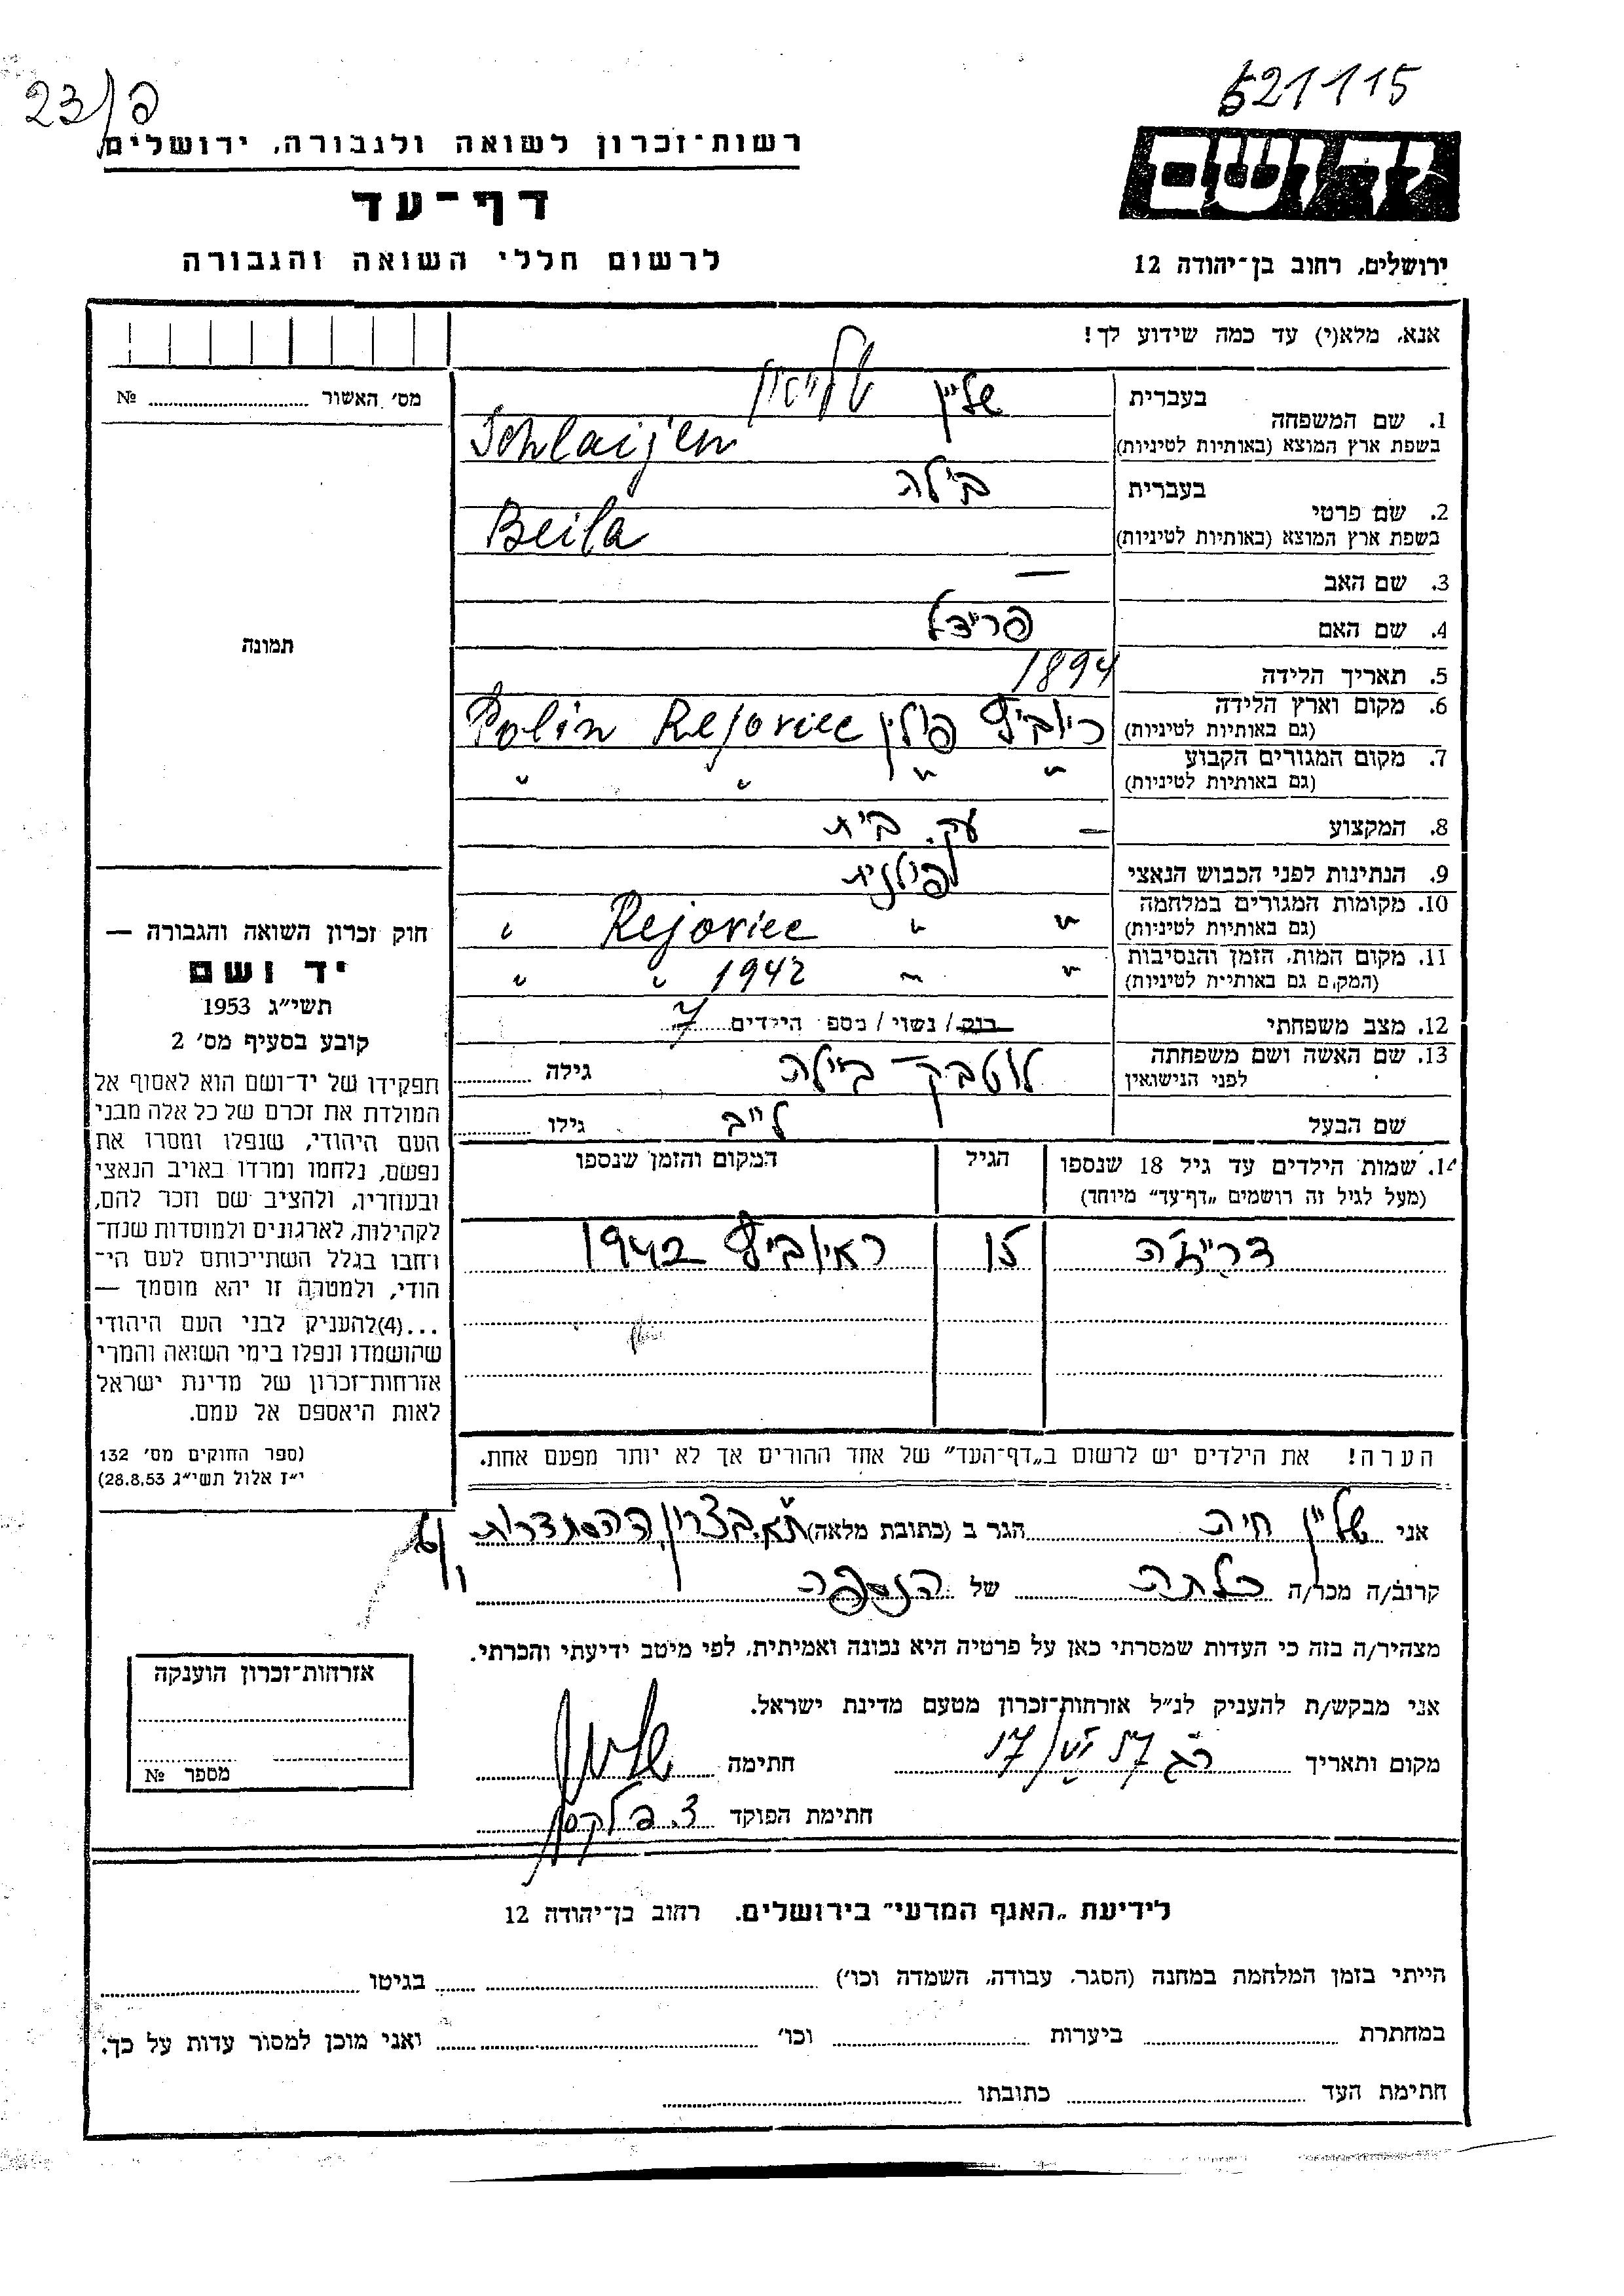 23/פ
521115
רשות־זכרון לשואה ולגבורה, ירושלים
יד ושם
דף־עד
לרשום חללי השואה והגבורה
ירושלים, רחוב בן־יהודה 12
אנא, מלא(י) עד כמה שידוע לך!
מס׳ האשור № ........
1. שם המשפחה
בעברית שליין
בשפת ארץ המוצא (באותיות לטיניות) Schlaijen
2. שם פרטי
בעברית ביילה
בשפת ארץ המוצא (באותיות לטיניות) Beila
3. שם האב —
4. שם האם פריידל
5. תאריך הלידה 1894
6. מקום וארץ הלידה
(גם באותיות לטיניות) ריוביץ פולין Rejoviec Polin
7. מקום המגורים הקבוע
(גם באותיות לטיניות) " " " "
8. המקצוע — עק. בית
9. הנתינות לפני הכבוש הנאצי פולנית
10. מקומות המגורים במלחמה
(גם באותיות לטיניות) " " Rejoviec "
11. מקום המות, הזמן והנסיבות
(המקום גם באותיות לטיניות) " " 1942 " "
12. מצב משפחתי רוק / נשוי / מספר הילדים 7
13. שם האשה ושם משפחתה
לפני הנישואין ביילה גילה ........
שם הבעל לייב גילו ........
14. שמות הילדים עד גיל 18 שנספו
(מעל לגיל זה רושמים „דף־עד״ מיוחד)
הגיל
המקום והזמן שנספו
15 ראיוביץ 1942
הערה! את הילדים יש לרשום ב„דף־העד״ של אחד ההורים אך לא יותר מפעם אחת.
תמונה
חוק זכרון השואה והגבורה —
יד ושם
תשי״ג 1953
קובע בסעיף מס׳ 2
תפקידו של יד־ושם הוא לאסוף אל
המולדת את זכרם של כל אלה מבני
העם היהודי, שנפלו ומסרו את
נפשם, נלחמו ומרדו באויב הנאצי
ובעוזריו, ולהציב שם וזכר להם,
לקהילות, לארגונים ולמוסדות שנח־
רבו בגלל השתייכותם לעם הי־
הודי, ולמטרה זו יהא מוסמך —
...(4) להעניק לבני העם היהודי
שהושמדו ונפלו בימי השואה והמרי
אזרחות־זכרון של מדינת ישראל
לאות היאספם אל עמם.
(ספר החוקים מס׳ 132
י״ז אלול תשי״ג 28.8.53)
אני שליין חיה הגר ב (כתובת מלאה) ת״א. בצרון, ההסתדרות
קרוב/ה מכר/ה כלתה של הנספה
מצהיר/ה בזה כי העדות שמסרתי כאן על פרטיה היא נכונה ואמיתית, לפי מיטב ידיעתי והכרתי.
אני מבקש/ת להעניק לנ״ל אזרחות־זכרון מטעם מדינת ישראל.
מקום ותאריך ........ חתימה ........
חתימת הפוקד ........
אזרחות־זכרון הוענקה
מספר №
לידיעת „האגף המדעי״ בירושלים. רחוב בן־יהודה 12
הייתי בזמן המלחמה במחנה (הסגר, עבודה, השמדה וכו׳) ........ בגיטו ........
במחתרת ........ ביערות ........ וכו׳ ........ ואני מוכן למסור עדות על כך.
חתימת העד ........ כתובתו ........